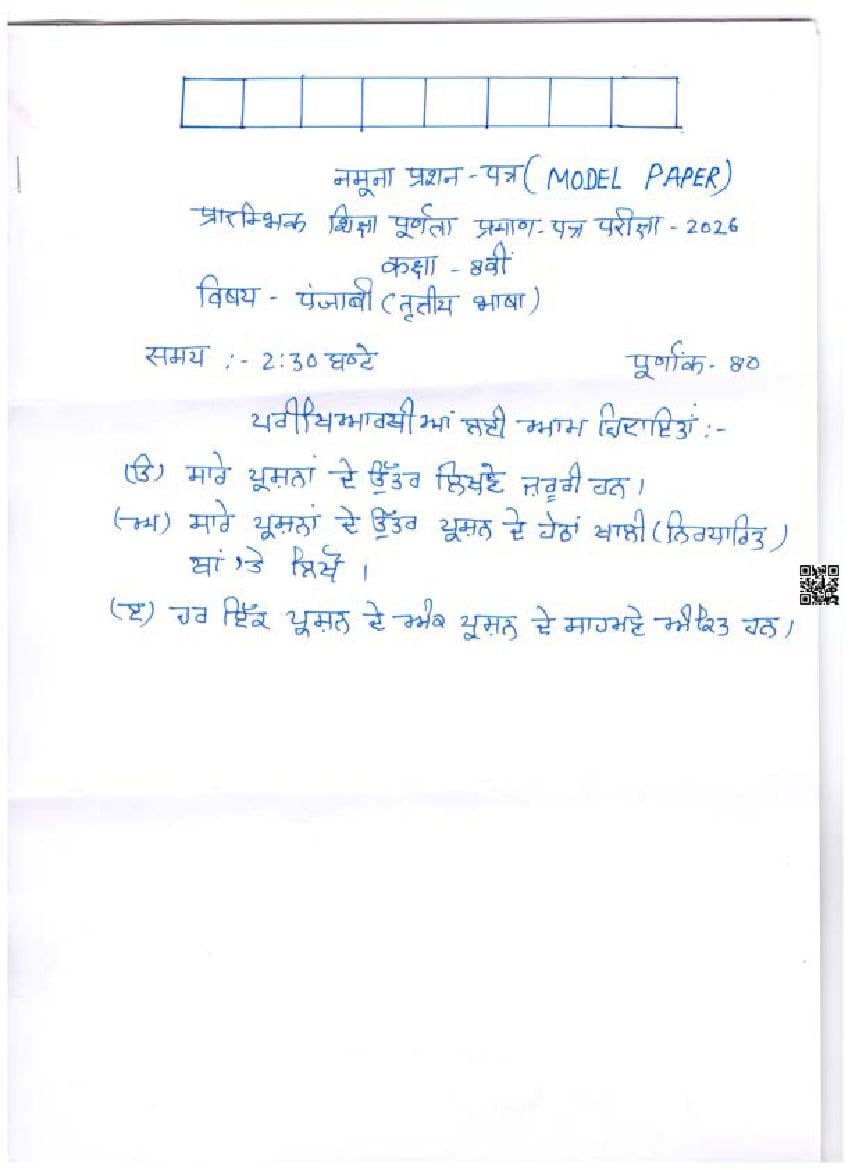 नमूना प्रशन - पत्र ( MODEL PAPER )
प्रारम्भिक शिक्षा पूर्णता प्रमाण-पत्र परीक्षा - 2026
कक्षा - 8वीं
विषय - पंजाबी ( तृतीय भाषा )
समय :- 2:30 घण्टे पूर्णांक - 80
ਪਰੀਖਿਆਰਥੀਆਂ ਲਈ ਆਮ ਹਿਦਾਇਤਾਂ :-
(ੳ) ਸਾਰੇ ਪ੍ਰਸ਼ਨਾਂ ਦੇ ਉੱਤਰ ਲਿਖਣੇ ਜ਼ਰੂਰੀ ਹਨ।
(ਅ) ਸਾਰੇ ਪ੍ਰਸ਼ਨਾਂ ਦੇ ਉੱਤਰ ਪ੍ਰਸ਼ਨ ਦੇ ਹੇਠਾਂ ਖਾਲੀ (ਨਿਰਧਾਰਿਤ)
ਥਾਂ 'ਤੇ ਲਿਖੋ ।
(ੲ) ਹਰ ਇੱਕ ਪ੍ਰਸ਼ਨ ਦੇ ਅੰਕ ਪ੍ਰਸ਼ਨ ਦੇ ਸਾਹਮਣੇ ਅੰਕਿਤ ਹਨ।